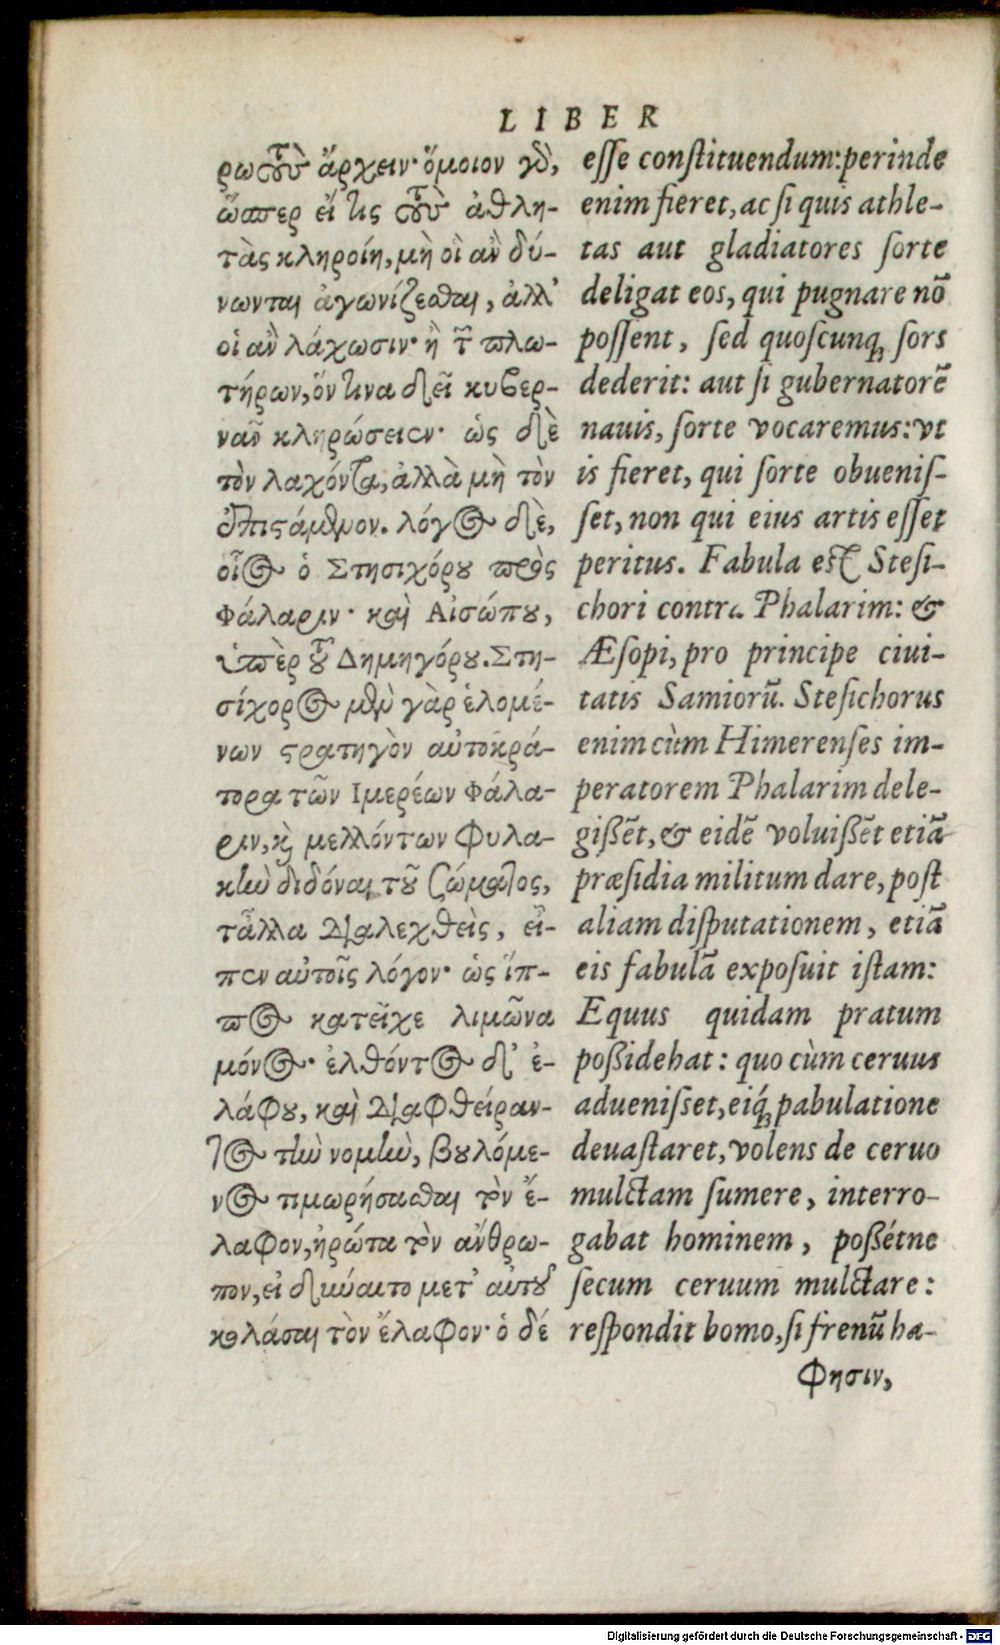 LIBER
ρωτοὺς ἄρχειν· ὅμοιον γὰρ,
ὥσπερ εἴ τις τοὺς ἀθλη-
τὰς κληροίη, μὴ οἳ ἂν δύ-
νωνται ἀγωνίζεσθαι, ἀλλ'
οἱ ἂν λάχωσιν· ἢ τῶν πλω-
τήρων, ὅν τινα δεῖ κυβερ-
νᾶν κληρώσειεν· ὡς δὲ
τὸν λαχόντα, ἀλλὰ μὴ τὸν
ἐπιστάμενον. λόγος δὲ,
οἷος ὁ Στησιχόρου πρὸς
Φάλαριν· καὶ Αἰσώπου,
ὑπὲρ τοῦ Δημηγόρου. Στη-
σίχορος μὲν γὰρ ἑλομέ-
νων στρατηγὸν αὐτοκρά-
τορα τῶν Ιμερέων Φάλα-
ριν, καὶ μελλόντων φυλα-
κὴν διδόναι τοῦ σώματος,
τἆλλα διαλεχθεὶς, εἶ-
πεν αὐτοῖς λόγον· ὡς ἵπ-
πος κατεῖχε λιμῶνα
μόνος· ἐλθόντος δ' ἐ-
λάφου, καὶ διαφθείραν-
τος τὴν νομὴν, βουλόμε-
νος τιμωρήσασθαι τὸν ἔ-
λαφον, ἠρώτα τὸν ἄνθρω-
πον, εἰ δύναιτο μετ' αὐτοῦ
κολάσαι τὸν ἔλαφον· ὁ δέ
esse constituendum: perinde
enim fieret, ac si quis athle-
tas aut gladiatores sorte
deligat eos, qui pugnare nō
possent, sed quoscunq; sors
dederit: aut si gubernatorē
nauis, sorte vocaremus: vt
is fieret, qui sorte obuenis-
set, non qui eius artis esset
peritus. Fabula est Stesi-
chori contra Phalarim: &
Æsopi, pro principe ciui-
tatis Samiorū. Stesichorus
enim cùm Himerenses im-
peratorem Phalarim dele-
gissēt, & eidē voluissēt etiā
præsidia militum dare, post
aliam disputationem, etiā
eis fabulā exposuit istam:
Equus quidam pratum
possidehat: quo cùm ceruus
aduenisset, eiq́; pabulatione
deuastaret, volens de ceruo
mulctam sumere, interro-
gabat hominem, possétne
secum ceruum mulctare:
respondit homo, si frenū ha-
φησιν,
Digitalisierung gefördert durch die Deutsche Forschungsgemeinschaft - DFG